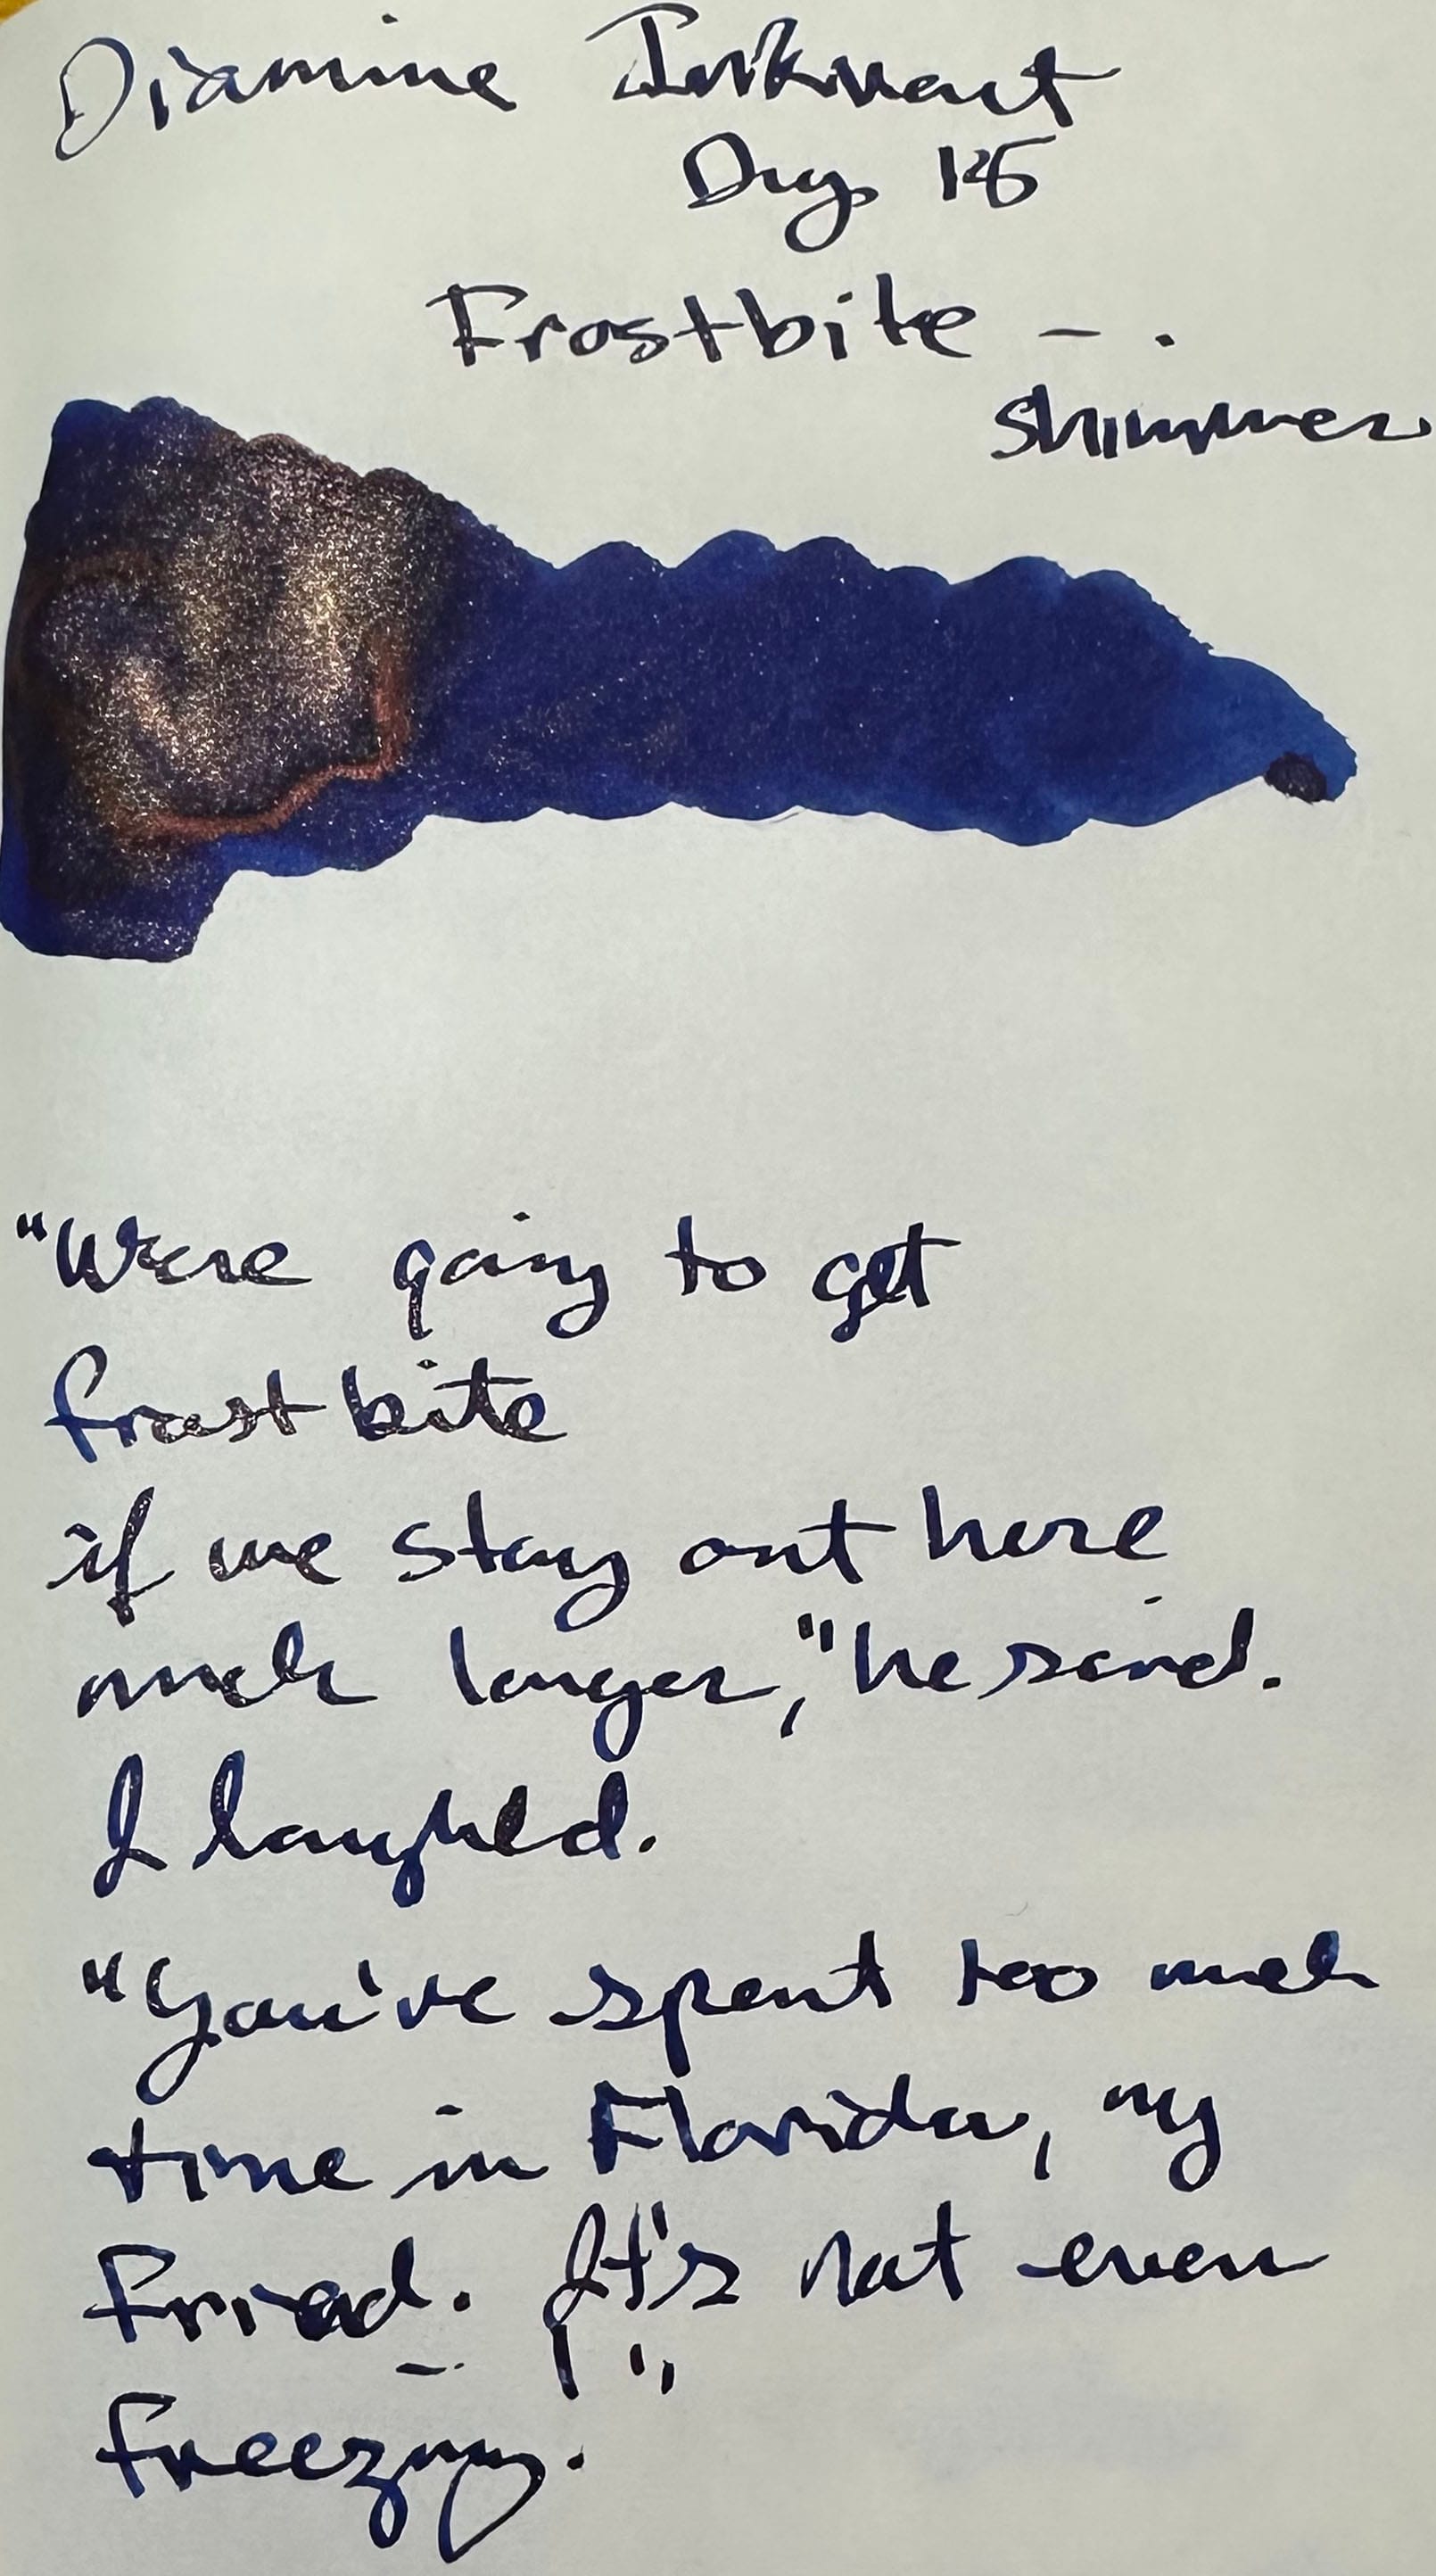 Diamine Inkvent
Day 15
Frostbite -.
shimmer
"We're going to get
frostbite
if we stay out here
much longer," he said.
I laughed.
"You've spent too much
time in Florida, my
friend. It's not even
freezing."